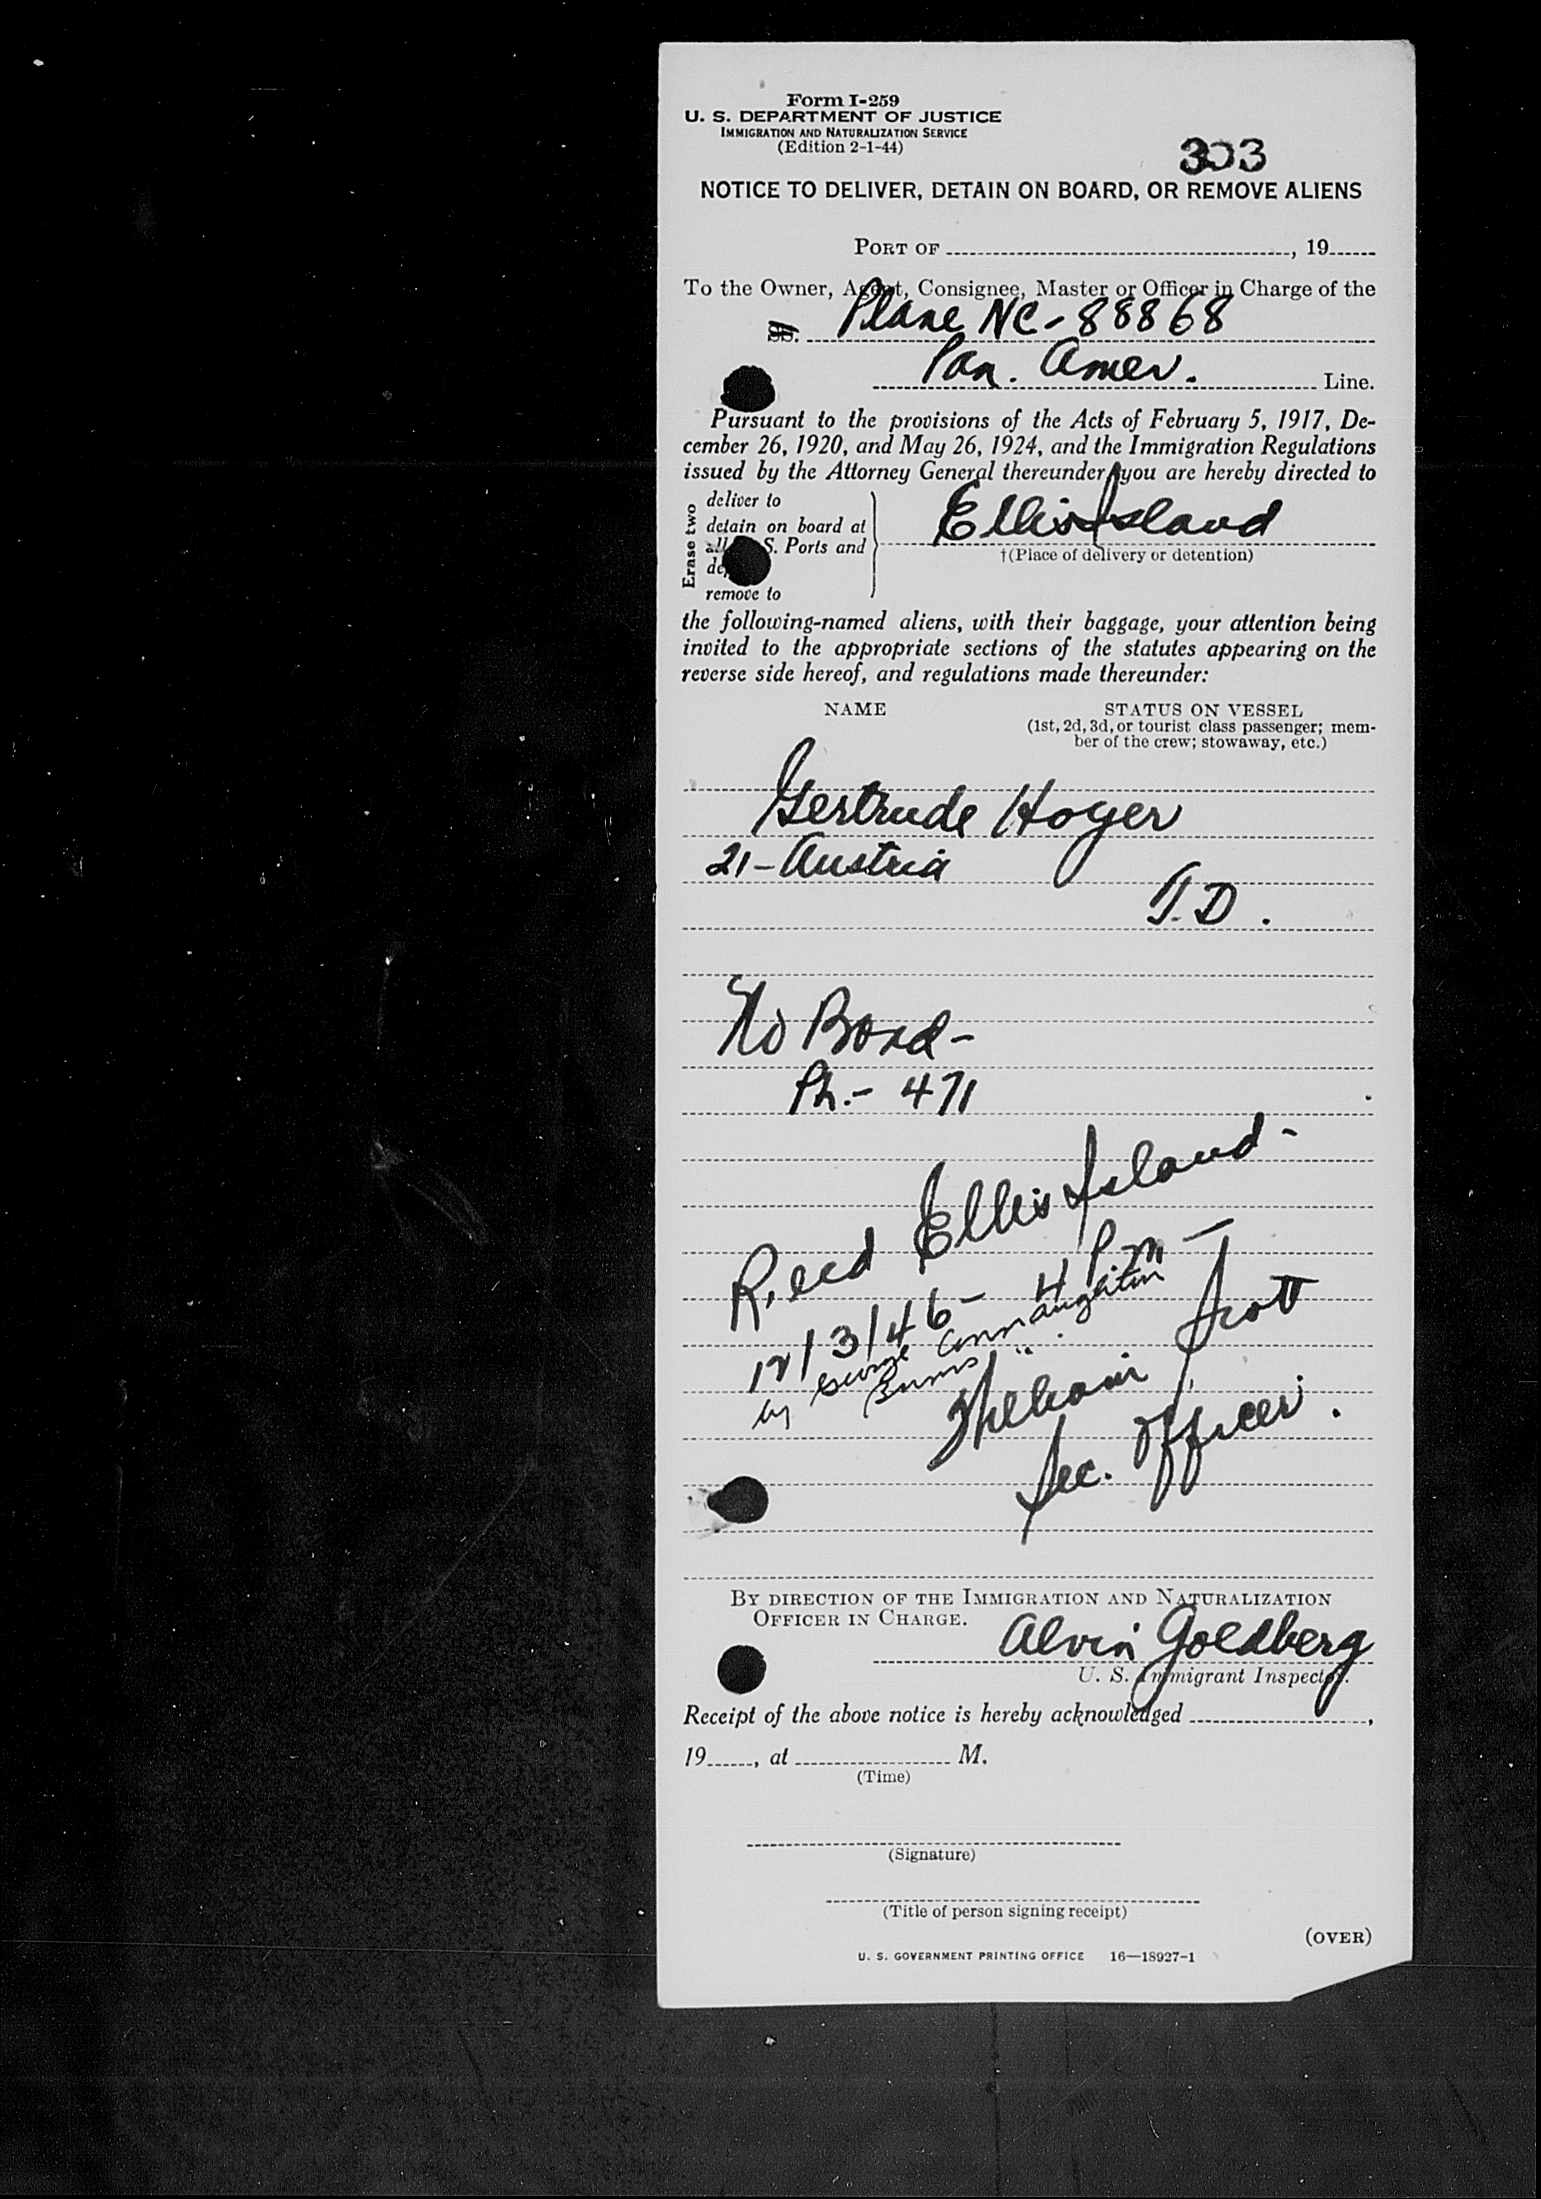 Form I-259
U. S. DEPARTMENT OF JUSTICE
IMMIGRATION AND NATURALIZATION SERVICE
(Edition 2-1-44)
303
NOTICE TO DELIVER, DETAIN ON BOARD, OR REMOVE ALIENS
PORT OF , 19
To the Owner, Agent, Consignee, Master or Officer in Charge of the
SS. Plane NC-88868
Pan. Amer. Line.
Pursuant to the provisions of the Acts of February 5, 1917, De-
cember 26, 1920, and May 26, 1924, and the Immigration Regulations
issued by the Attorney General thereunder, you are hereby directed to
Erase two
deliver to
detain on board at
all S. Ports and
remove to
Ellis Island
†(Place of delivery or detention)
the following-named aliens, with their baggage, your attention being
invited to the appropriate sections of the statutes appearing on the
reverse side hereof, and regulations made thereunder:
NAME STATUS ON VESSEL
(1st, 2d, 3d, or tourist class passenger; mem-
ber of the crew; stowaway, etc.)
Gertrude Hoyer
21-Austria
T.D.
No Bond-
Ph.- 471
Recd Ellis Island-
12/3/46- 4 P.m-
by George Connaughton
Burns " .
William Trott
Sec. Officer.
BY DIRECTION OF THE IMMIGRATION AND NATURALIZATION
OFFICER IN CHARGE.
Alvin Goldberg
U. S. Immigrant Inspector.
Receipt of the above notice is hereby acknowledged ,
19 , at M.
(Time)
(Signature)
(Title of person signing receipt)
(OVER)
U. S. GOVERNMENT PRINTING OFFICE 16—18927-1